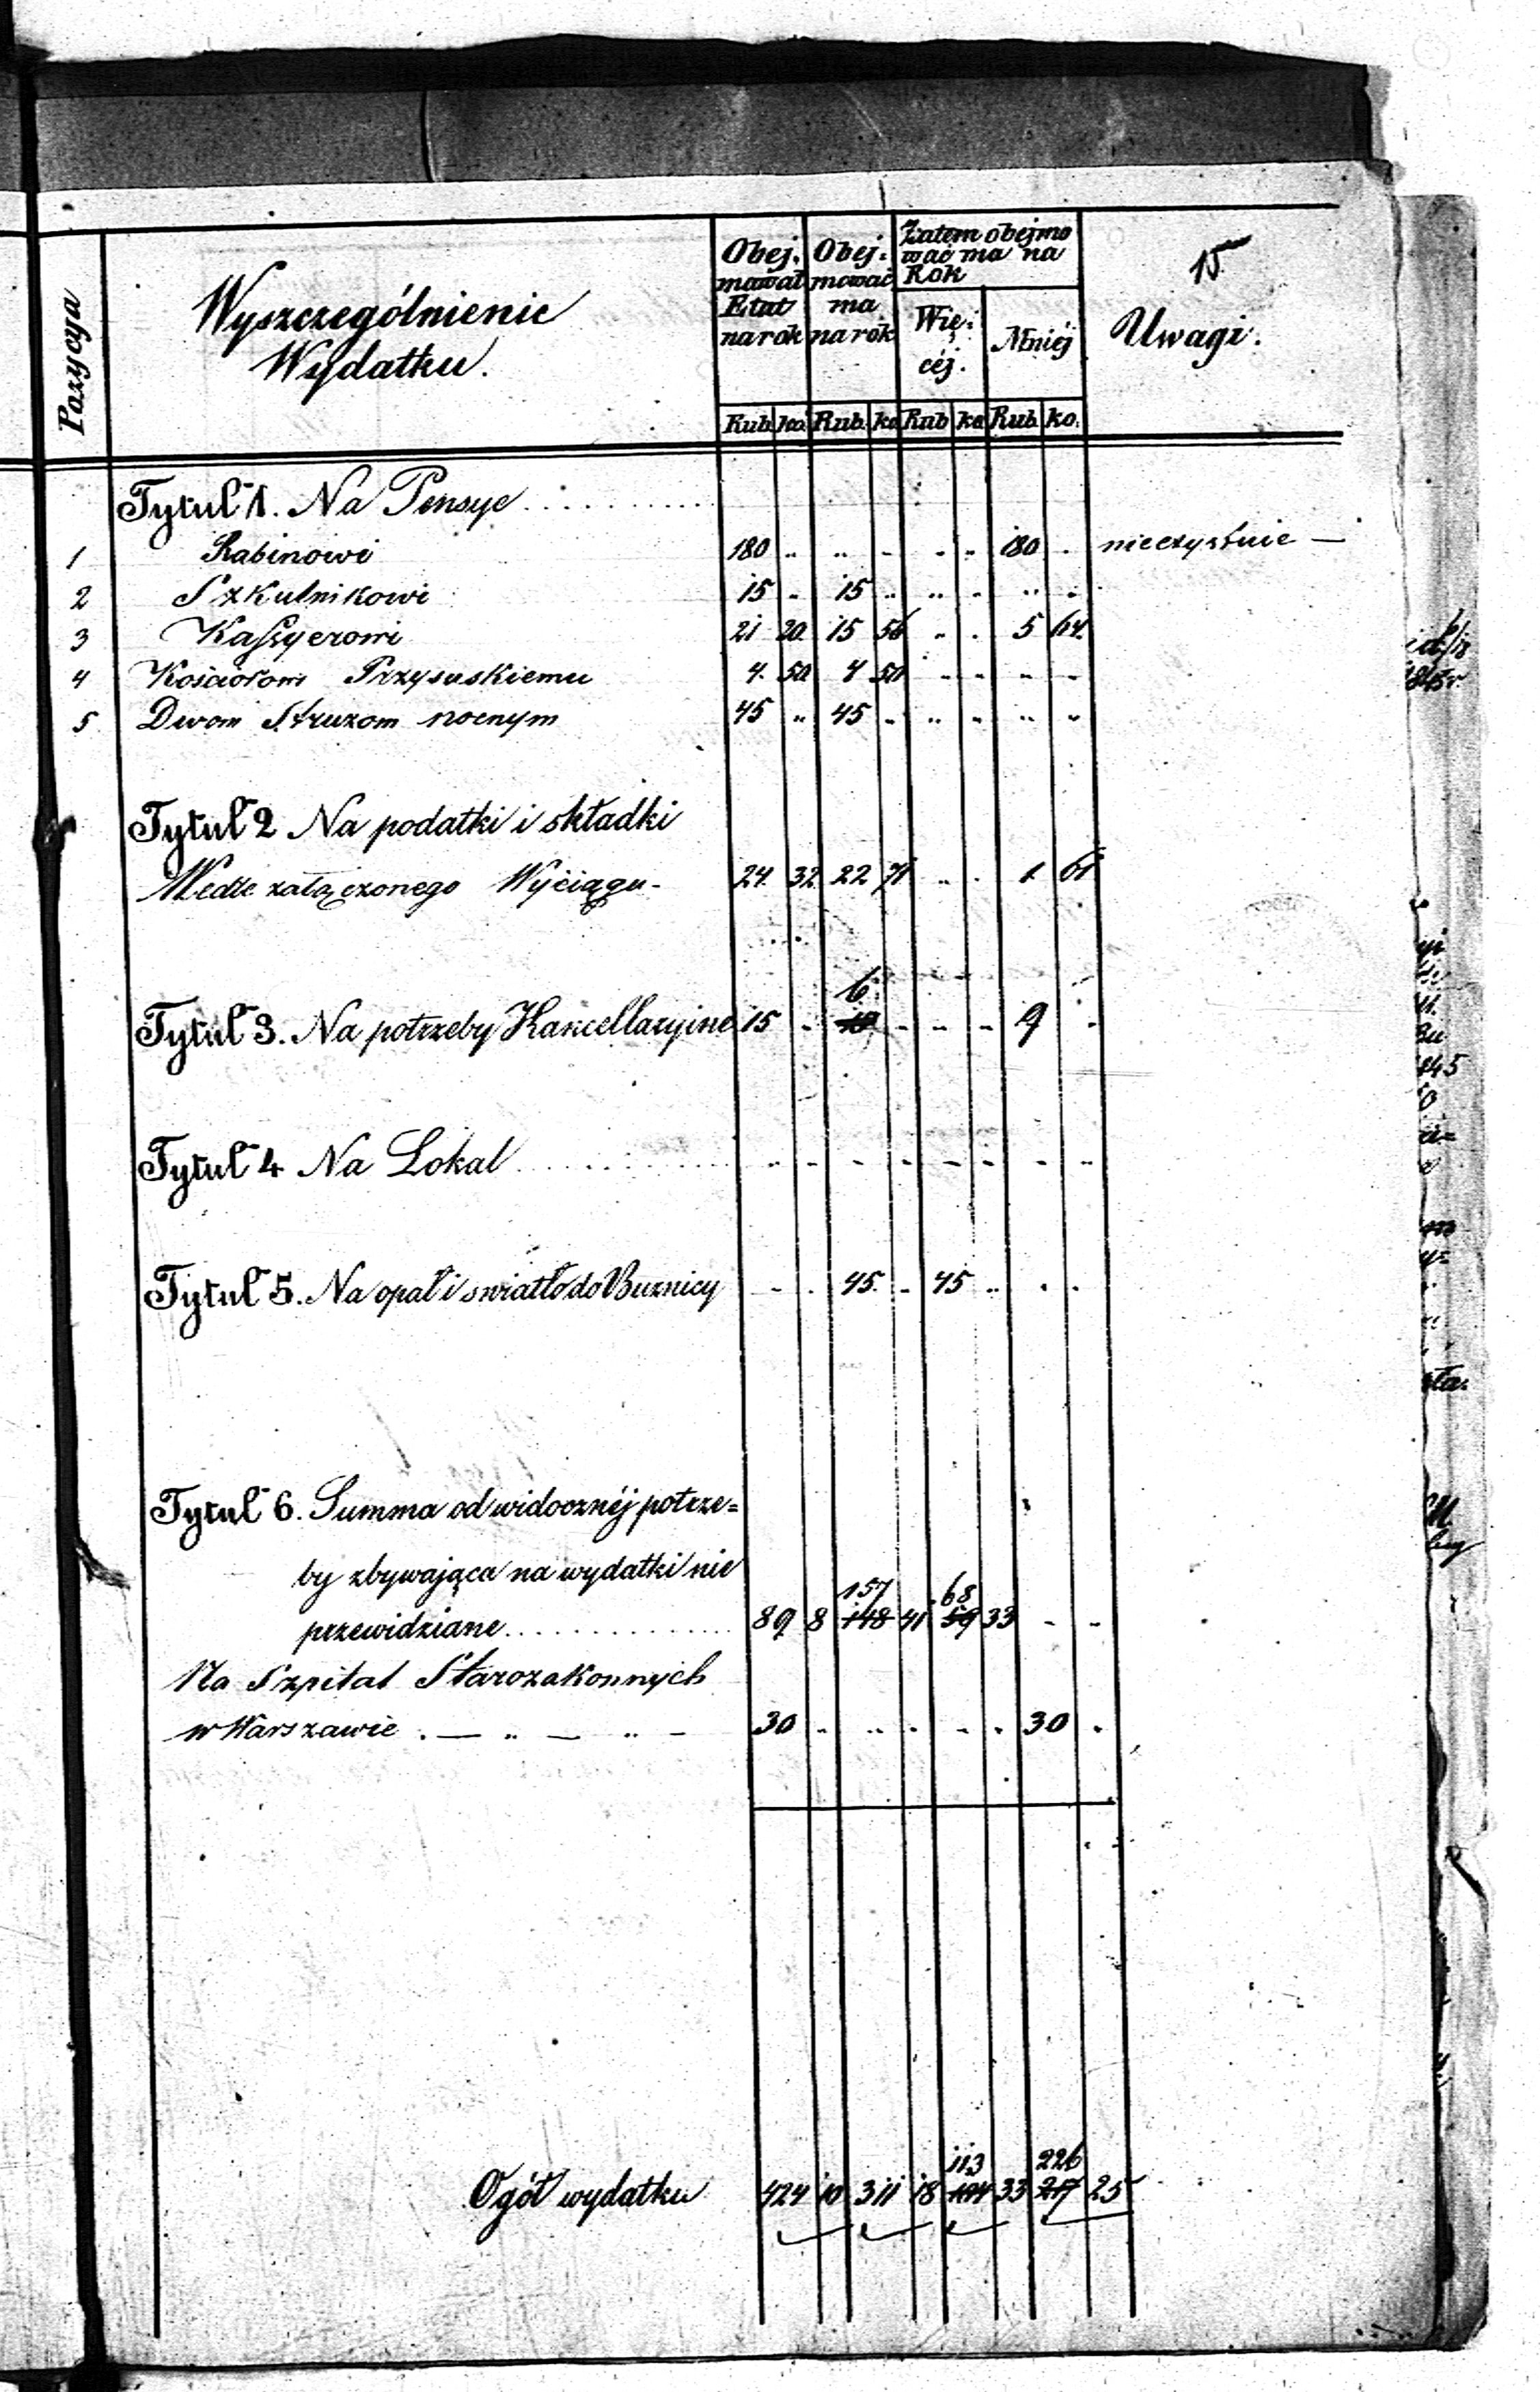 15
Pozycya
Wyszczególnienie
Wydatku.
Obej.
mował
Etat
na rok
Obej:
mować
ma
na rok
Zatem obejmo
wać ma na
Rok
Wię:
céj.
Mniéj
Uwagi.
Rub. ko. Rub. ko Rub ko Rub. ko.
Tytuł 1. Na Pensye . . . . . . . . . .
1 Rabinowi 180 .. .. - .. .. 180 . nieczystnie —
2 Szkulnikowi 15 .. 15 .. .. - .. ..
3 Kassyerowi 21 20. 15 56 .. . 5 64.
4 Kościołowi Przysuskiemu 4. 50 4 50 - - - -
5 Dwom Struzom nocnym 45 .. 45 .. .. - .. ..
Tytuł 2 Na podatki i składki
Wedle załączonego Wyciągu - 24. 32 22 71 .. . 1. 61
6
Tytuł 3. Na potrzeby Kancellaryine 15 - 10 - - - 9 -
Tytuł 4 Na Lokal . . . . . . . . . . - - - - - - - ..
Tytuł 5. Na opał i swiatło do Buznicy - . 45. - 45 .. . .
Tytuł 6. Summa od widocznéj potrze=
by zbywająca na wydatki nie
157 68
przewidziane . . . . . . . . . . 89 8 148 41 59 33 - -
Na Szpital Starozakonnych
w Warszawie . — .. — .. - 30 .. .. . - . 30 .
113 226
Ogół wydatku 424 10 311 18 104 33 217 25